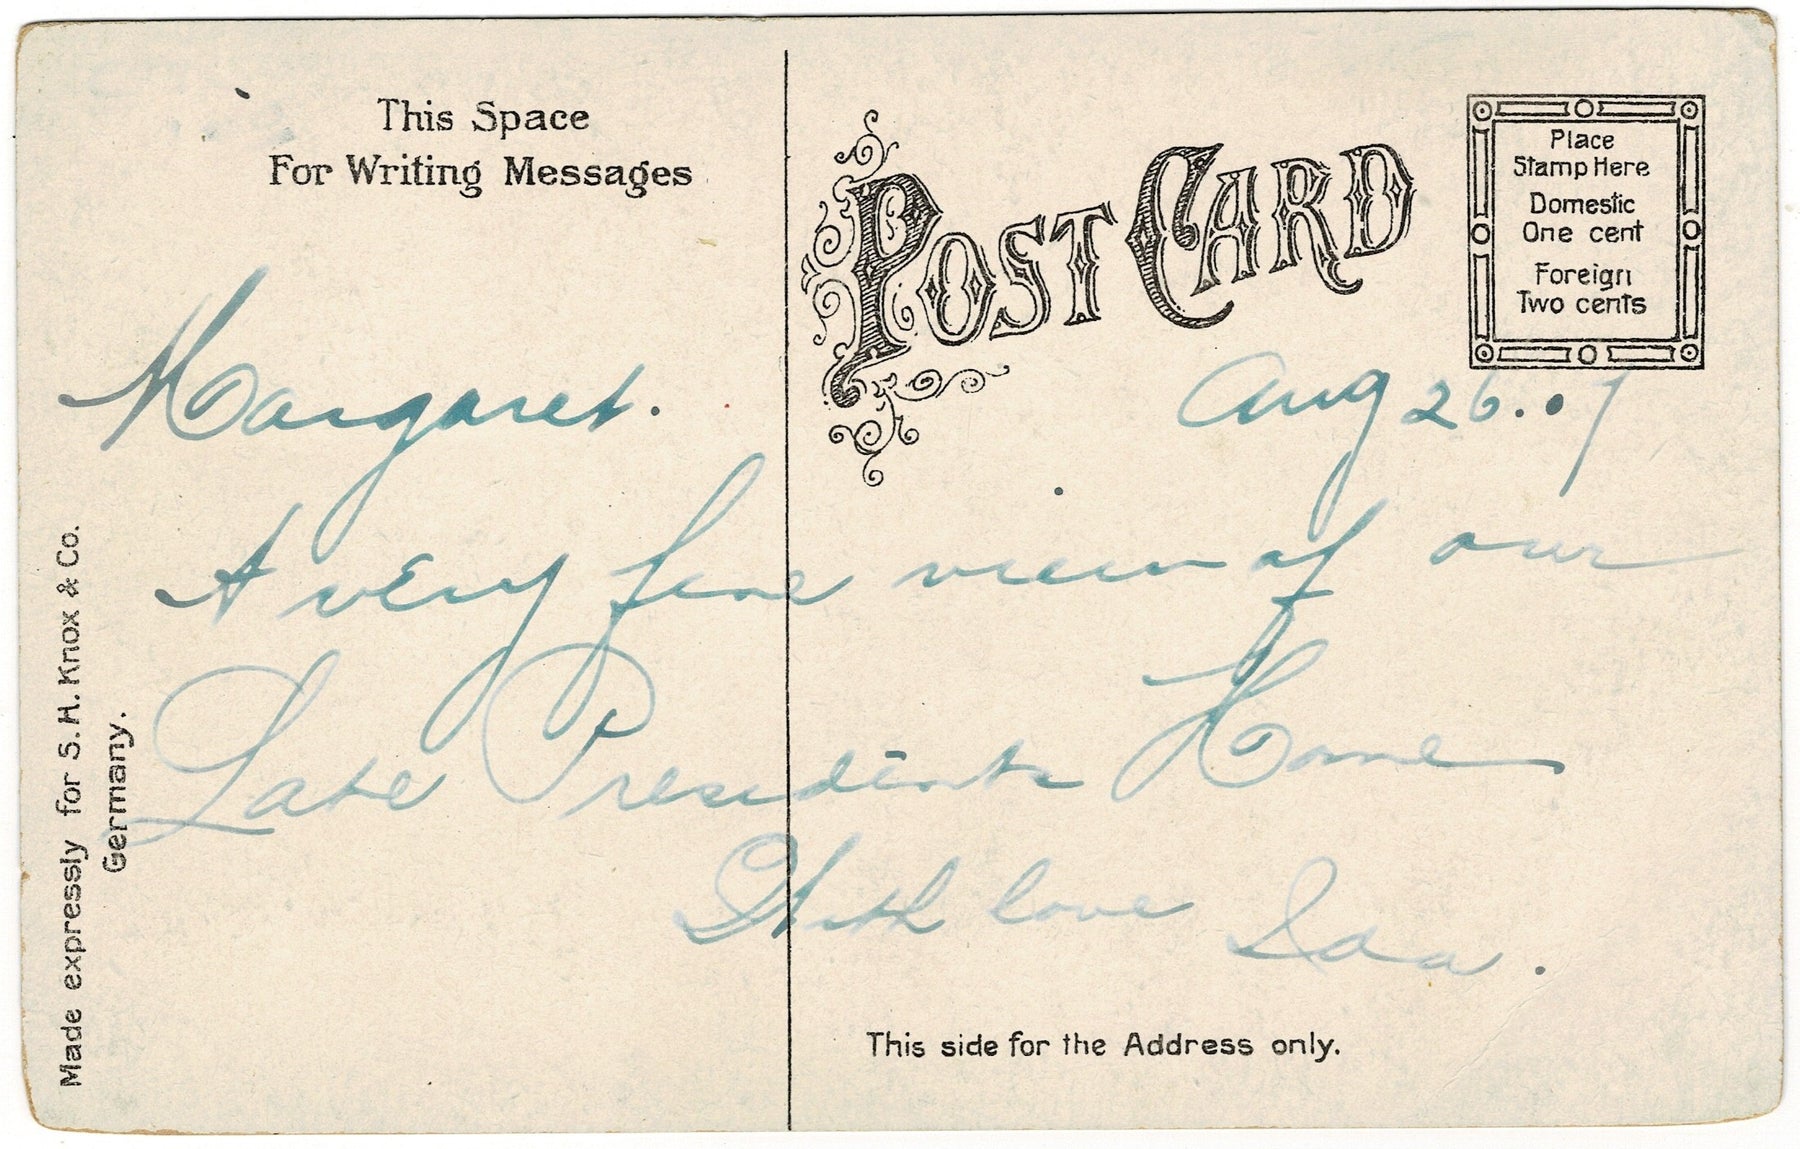 This Space
For Writing Messages
POST CARD
Place
Stamp Here
Domestic
One cent
Foreign
Two cents
Aug 26. 07
Margaret.
A very fine view of our
Late Presidents Home
With love Ida.
This side for the Address only.
Made expressly for S. H. Knox & Co.
Germany.